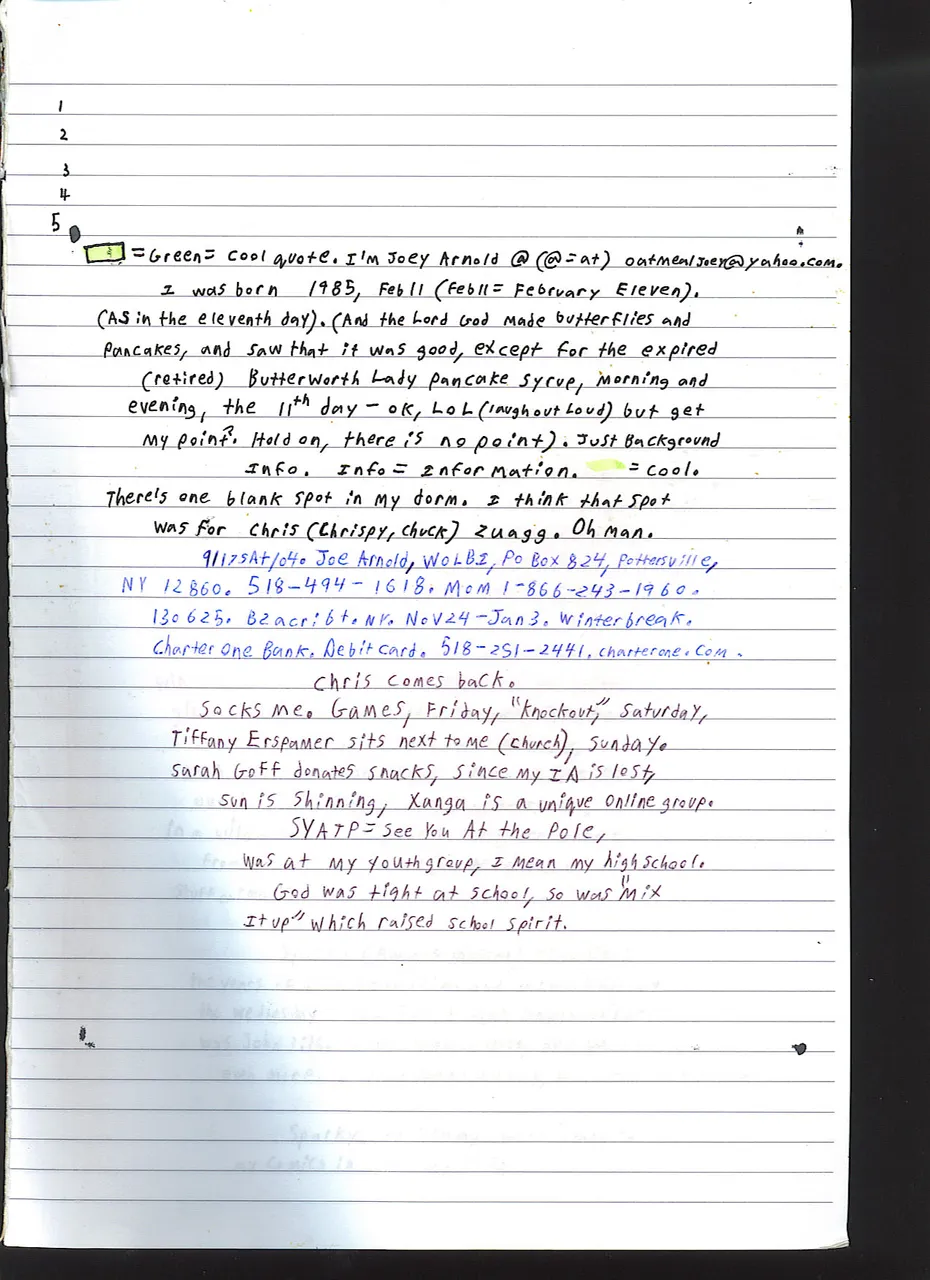 1
2
3
4
5
=Green= Cool quote. I'm Joey Arnold @ (@=at) oatmealJoey@yahoo.com.
I was born 1985, Feb 11 (Feb 11= February Eleven).
(As in the eleventh day). (And the Lord God made butterflies and
Pancakes, and saw that it was good, except for the expired
(retired) Butterworth Lady pancake syrup, morning and
evening, the 11th day - ok, LoL (laugh out Loud) but get
my point? Hold on, there is no point). Just Background
Info. Info = Information. = Cool.
There's one blank spot in my dorm. I think that spot
was for Chris (Chrispy, Chuck) Zuagg. Oh man.
9/17SAt/04. Joe Arnold, WOLBI, Po Box 824, Pottersville,
NY 12860. 518-494-1618. Mom 1-866-243-1960.
130625. NY. Nov24-Jan3. Winterbreak.
Charter One Bank. Debit Card. 518-251-2441. charterone.com.
Chris comes back.
Socks me. Games, Friday, "Knockout," Saturday,
Tiffany Erspamer sits next to me (church), Sunday.
Sarah Goff donates snacks, since my IA is lost,
Sun is Shinning, Xanga is a unique online group.
SYATP = See You At the Pole,
Was at my youthgroup, I mean my highschool.
God was tight at school, so was "Mix
It up" which raised school spirit.